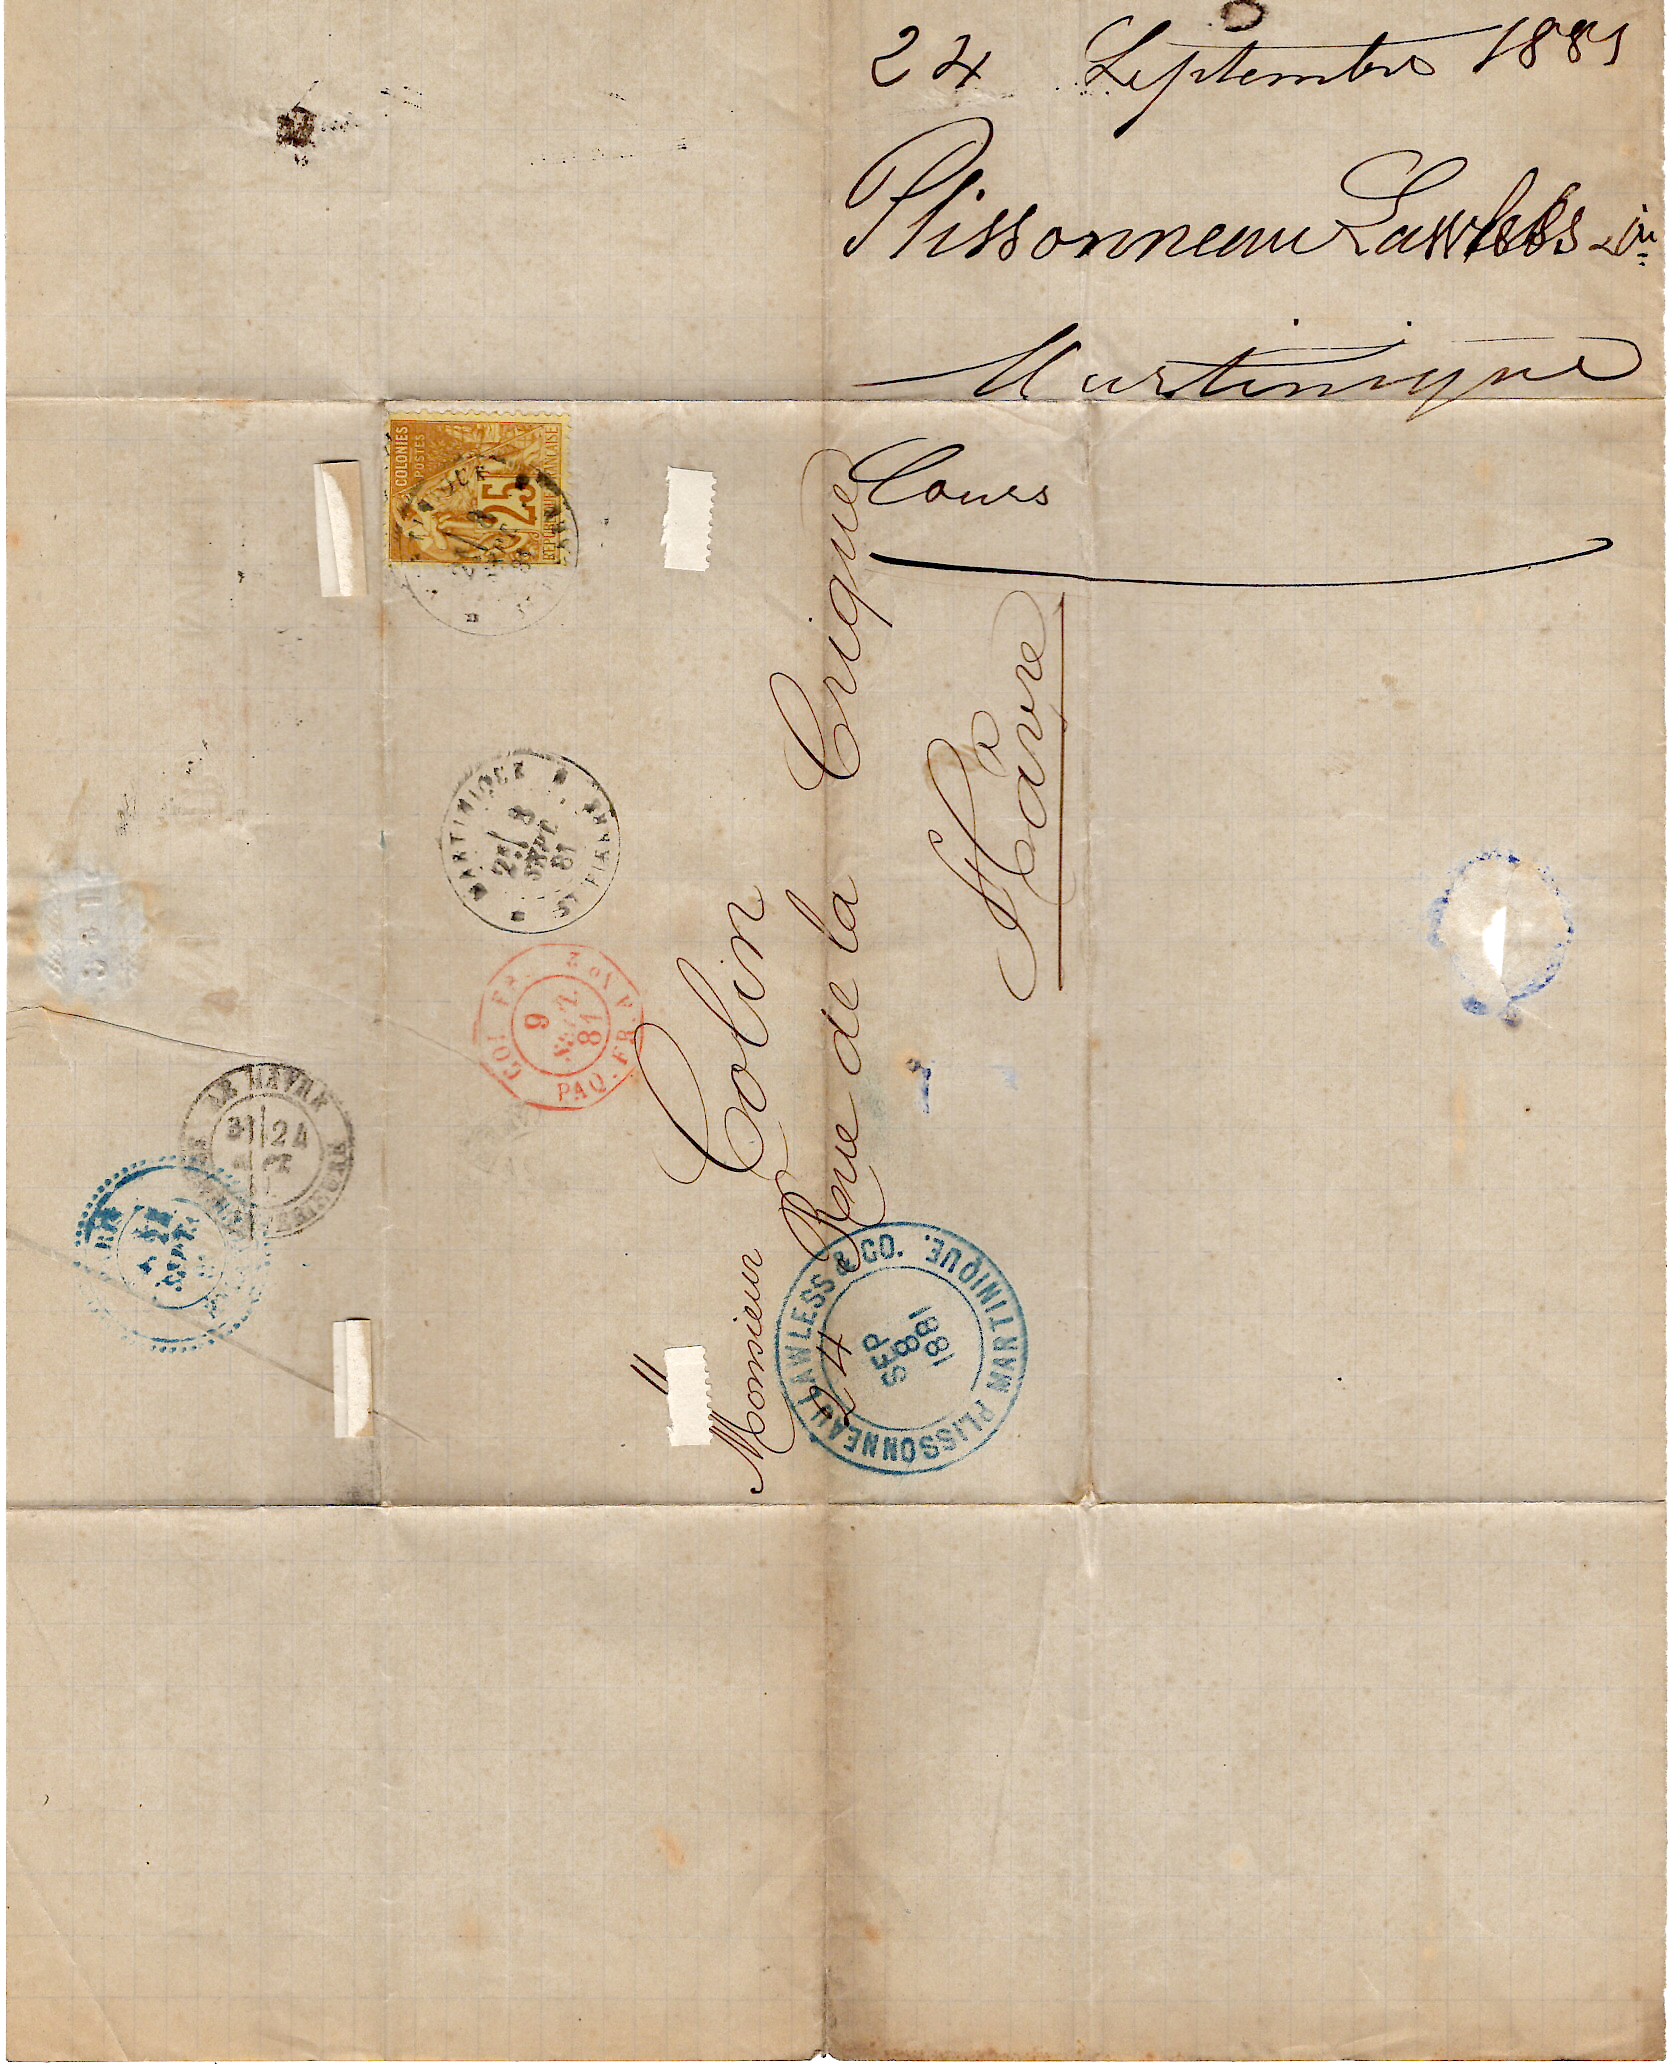 24 Septembre 1881
Plissonneau Lawless
Martinique
Cours
COLONIES
POSTES
25
REPUBLIQUE FRANCAISE
MARTINIQUE
ST PIERRE
2E/ 8
SEPT
81
COL. FR.
PAQ. FR.
9
SEPT
81
Monsieur Colin
24 Rue de la Crique
Hâvre
PLISSONNEAU LAWLESS & CO. MARTINIQUE.
SEP
8
1881
LE HAVRE
24